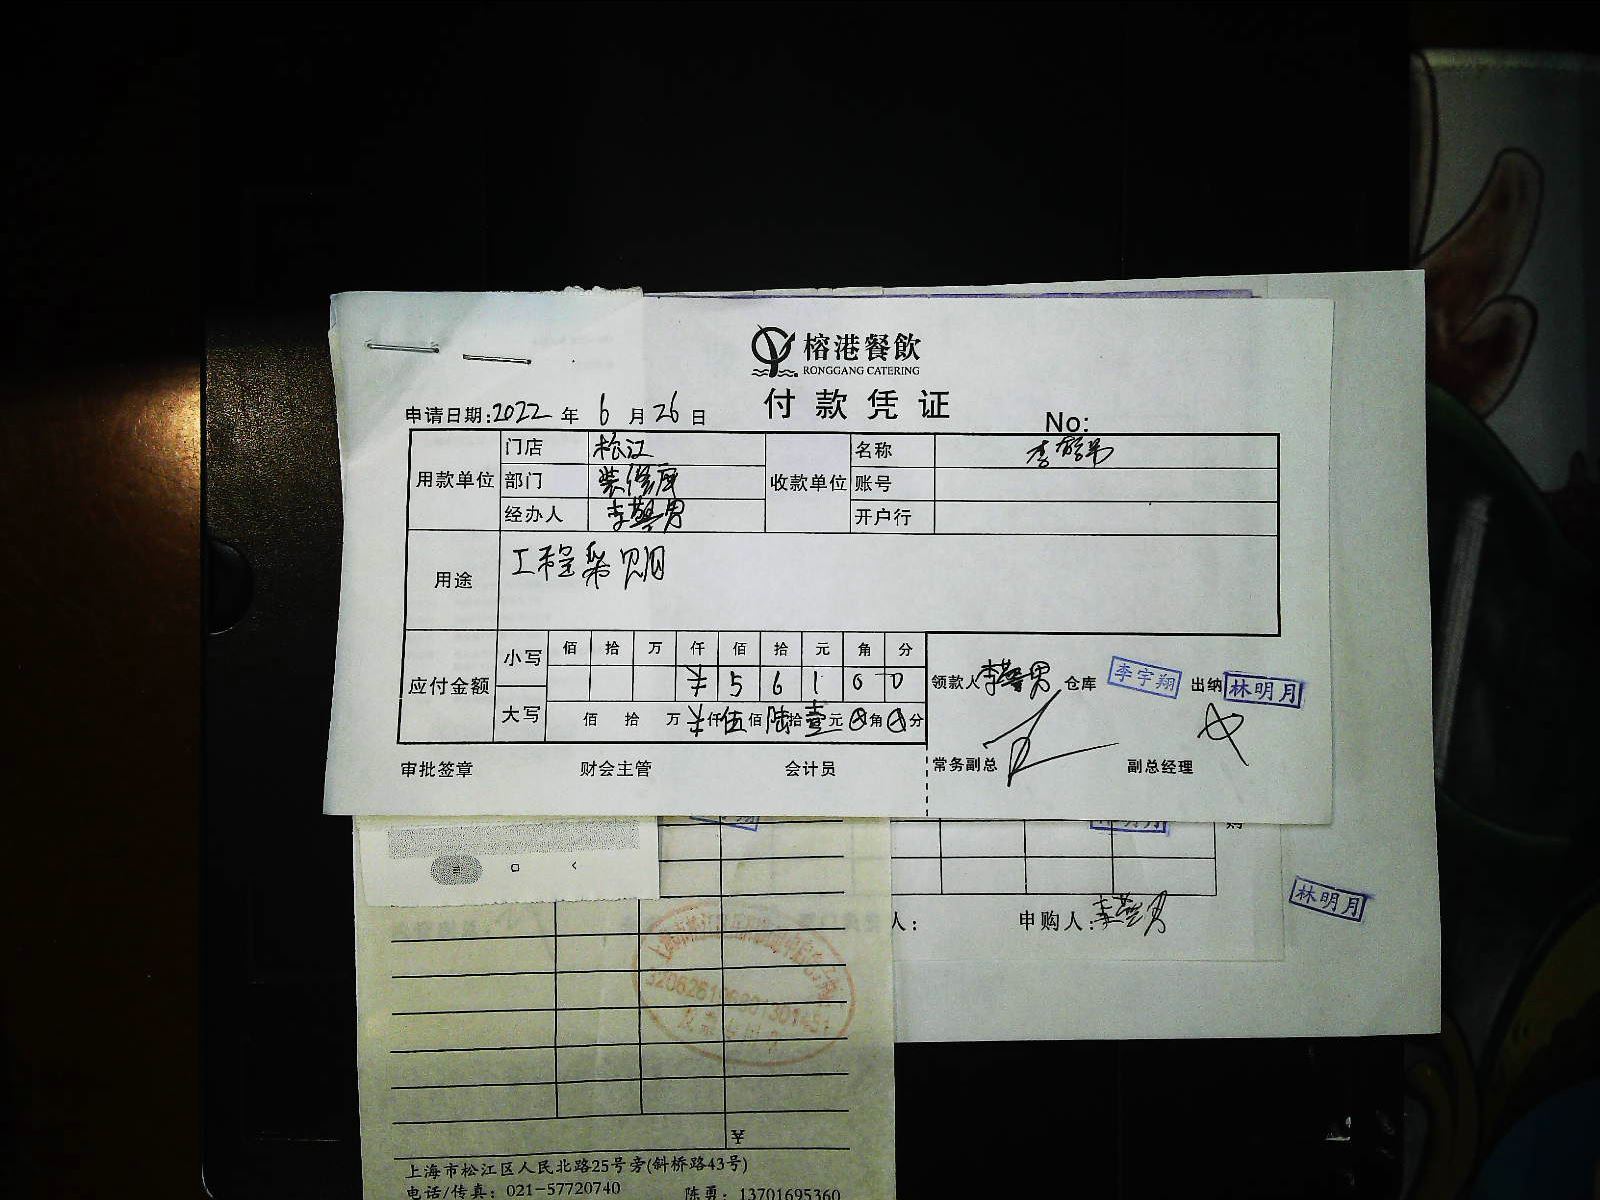 榕港餐飲
RONGGANG CATERING
付款凭证
申请日期:2022 年 6 月 26 日 No:
用款单位 门店 松江 收款单位 名称
部门 装修部 账号
经办人 开户行
用途 工程采购
应付金额 小写 佰 拾 万 仟 佰 拾 元 角 分
¥ 5 6 1 0 0
大写 佰 拾 万 ¥仟伍佰陆拾壹元 角 分
领款人 仓库 李宇翔 出纳 林明月
审批签章 财会主管 会计员 常务副总 副总经理
人: 申购人:
林明月
¥
上海市松江区人民北路25号旁(斜桥路43号)
电话/传真: 021-57720740 陈勇: 13701695360